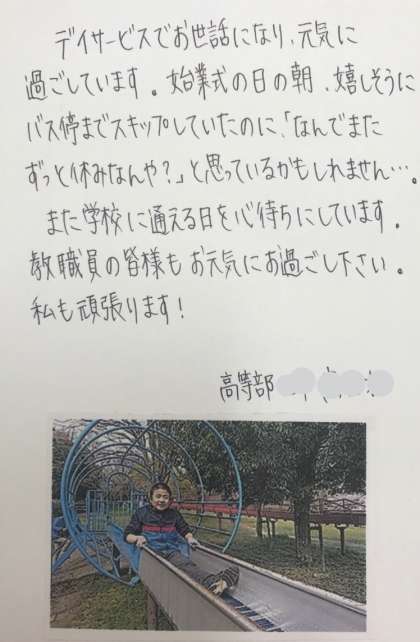 デイサービスでお世話になり、元気に
過ごしています。始業式の日の朝、嬉しそうに
バス停までスキップしていたのに、「なんでまた
ずっと休みなんや?」と思っているかもしれません…。
また学校に通える日を心待ちにしています。
教職員の皆様もお元気にお過ごし下さい。
私も頑張ります!
高等部